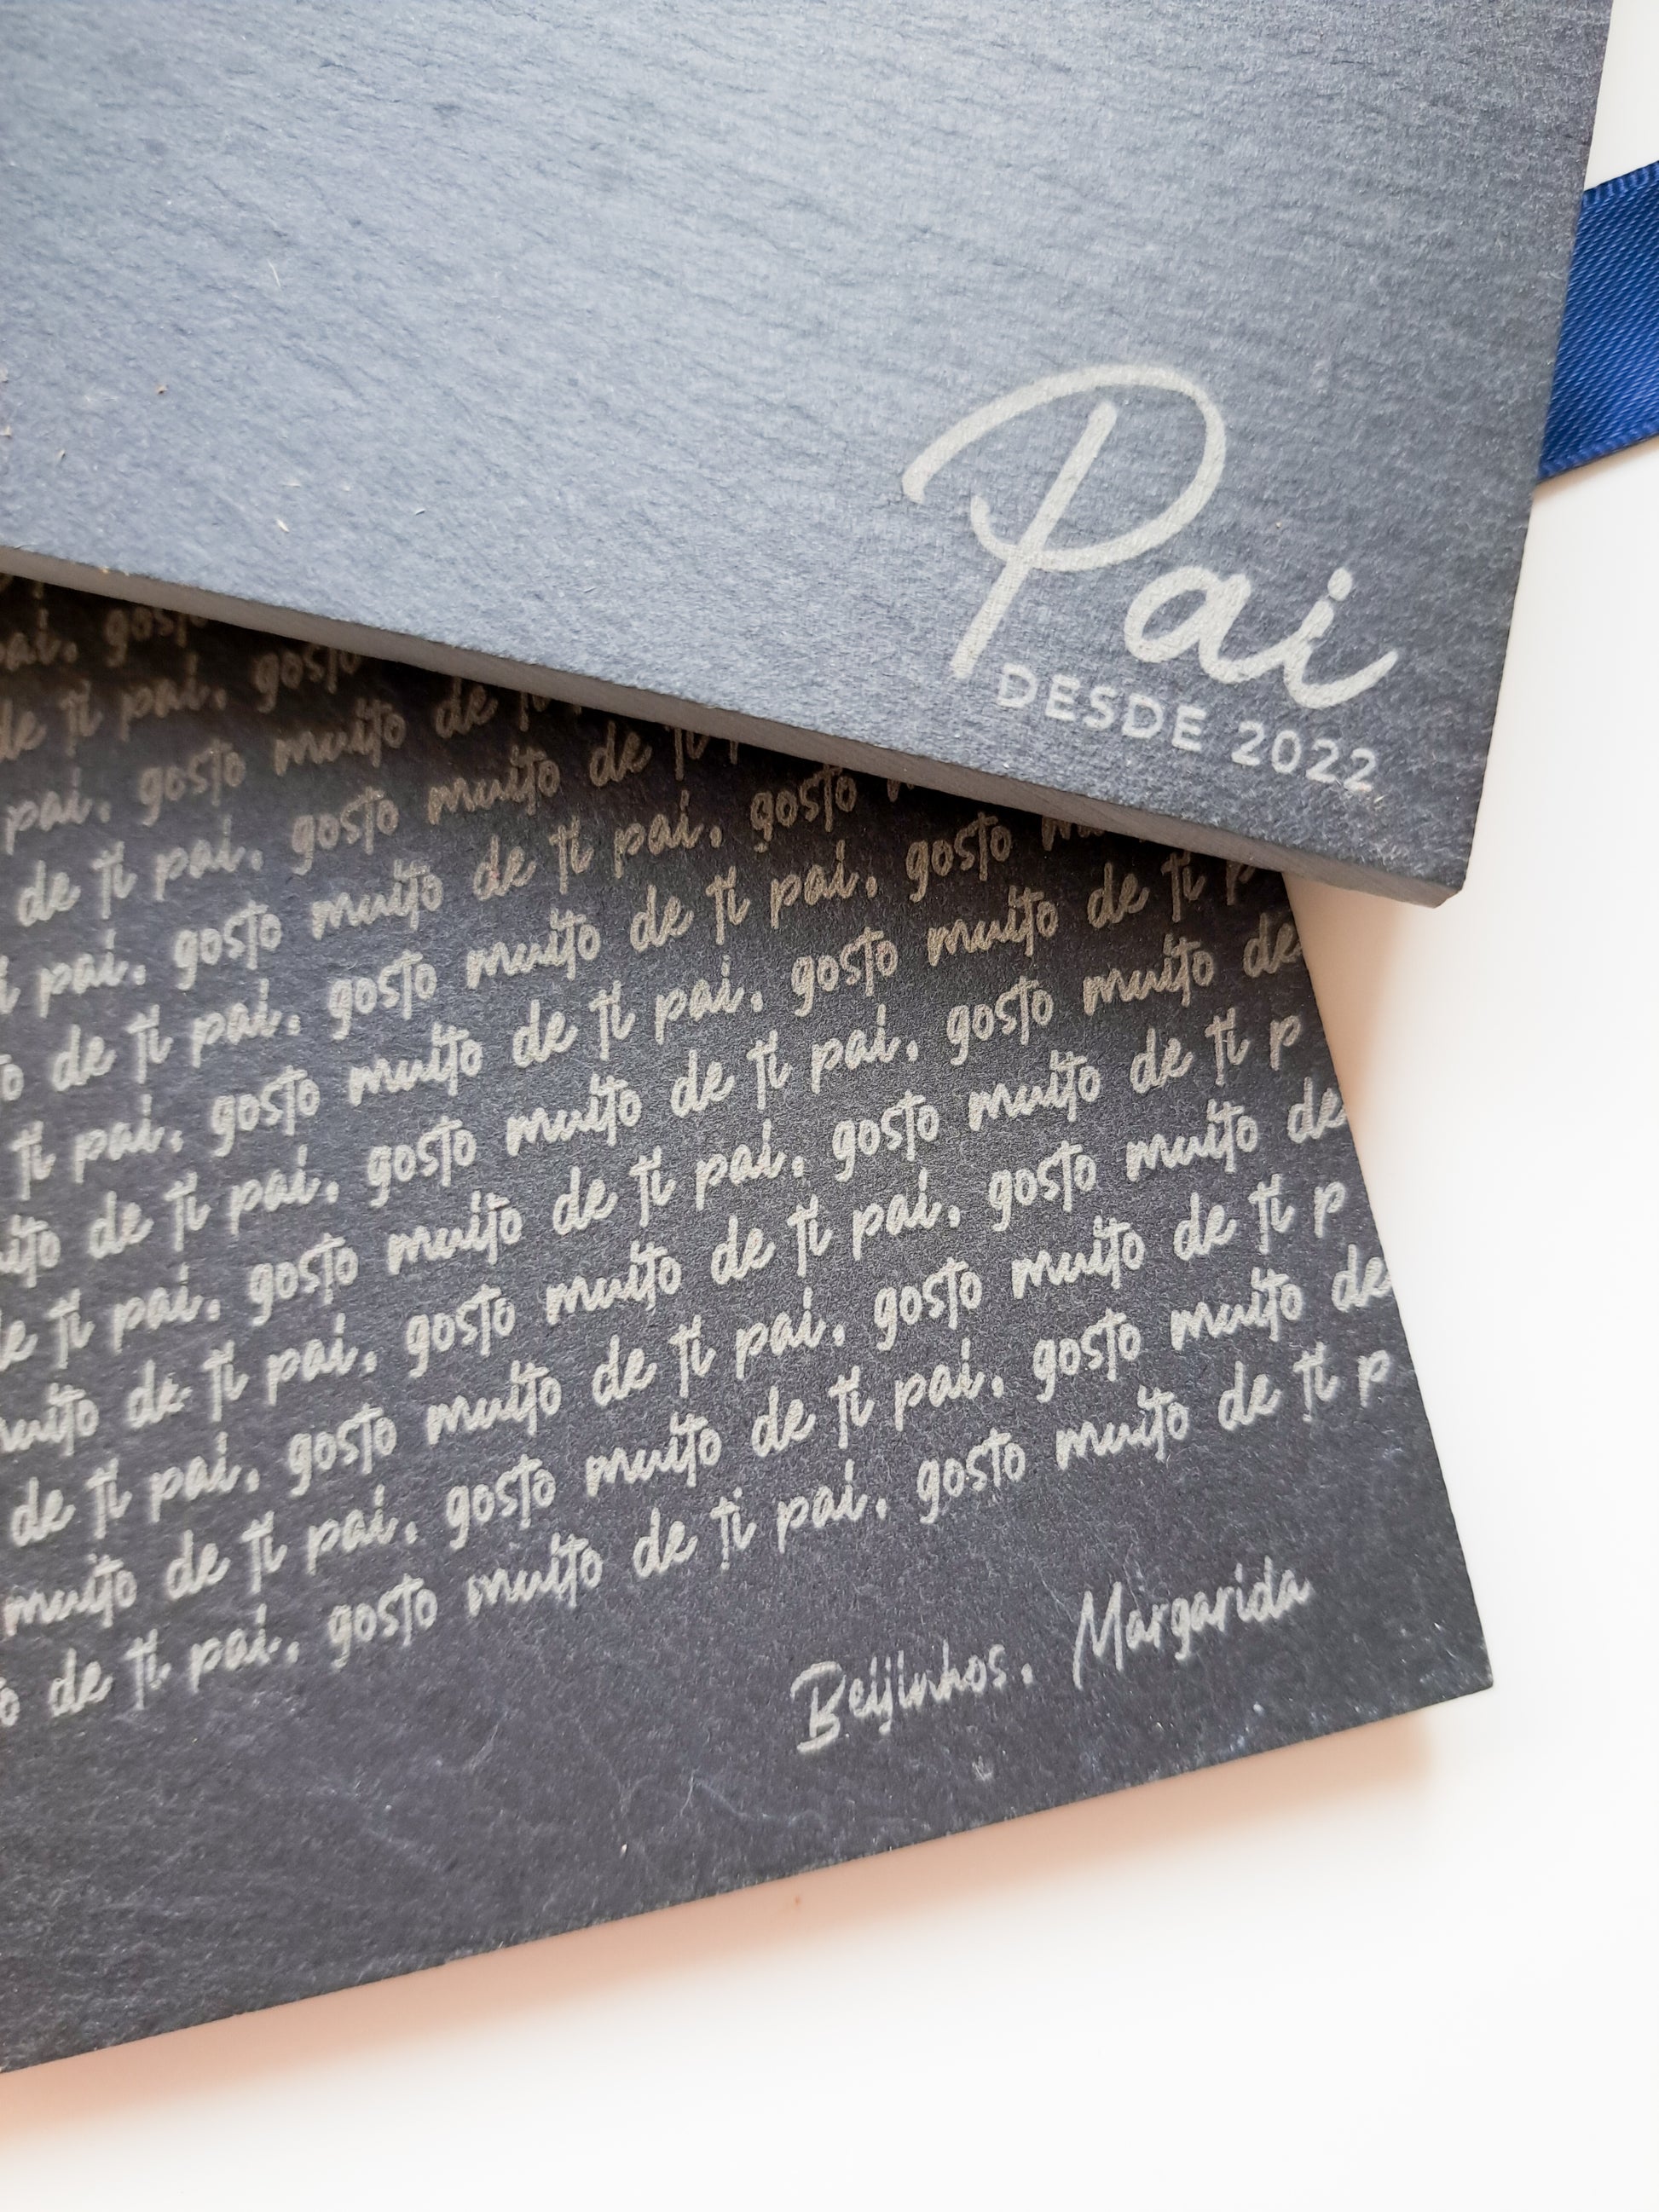 Pai
DESDE 2022
pai, gosto
de ti pai, gosto
pai, gosto muito de
de ti pai, gosto muito de ti
pai, gosto muito de ti pai, gosto
de ti pai, gosto muito de ti pai, gosto
ti pai, gosto muito de ti pai, gosto muito de ti p
uito de ti pai, gosto muito de ti pai, gosto muito de
de ti pai, gosto muito de ti pai, gosto muito de ti p
muito de ti pai, gosto muito de ti pai, gosto muito de
de ti pai, gosto muito de ti pai, gosto muito de ti p
muito de ti pai, gosto muito de ti pai, gosto muito de
o de ti pai, gosto muito de ti pai, gosto muito de ti p
Beijinhos, Margarida